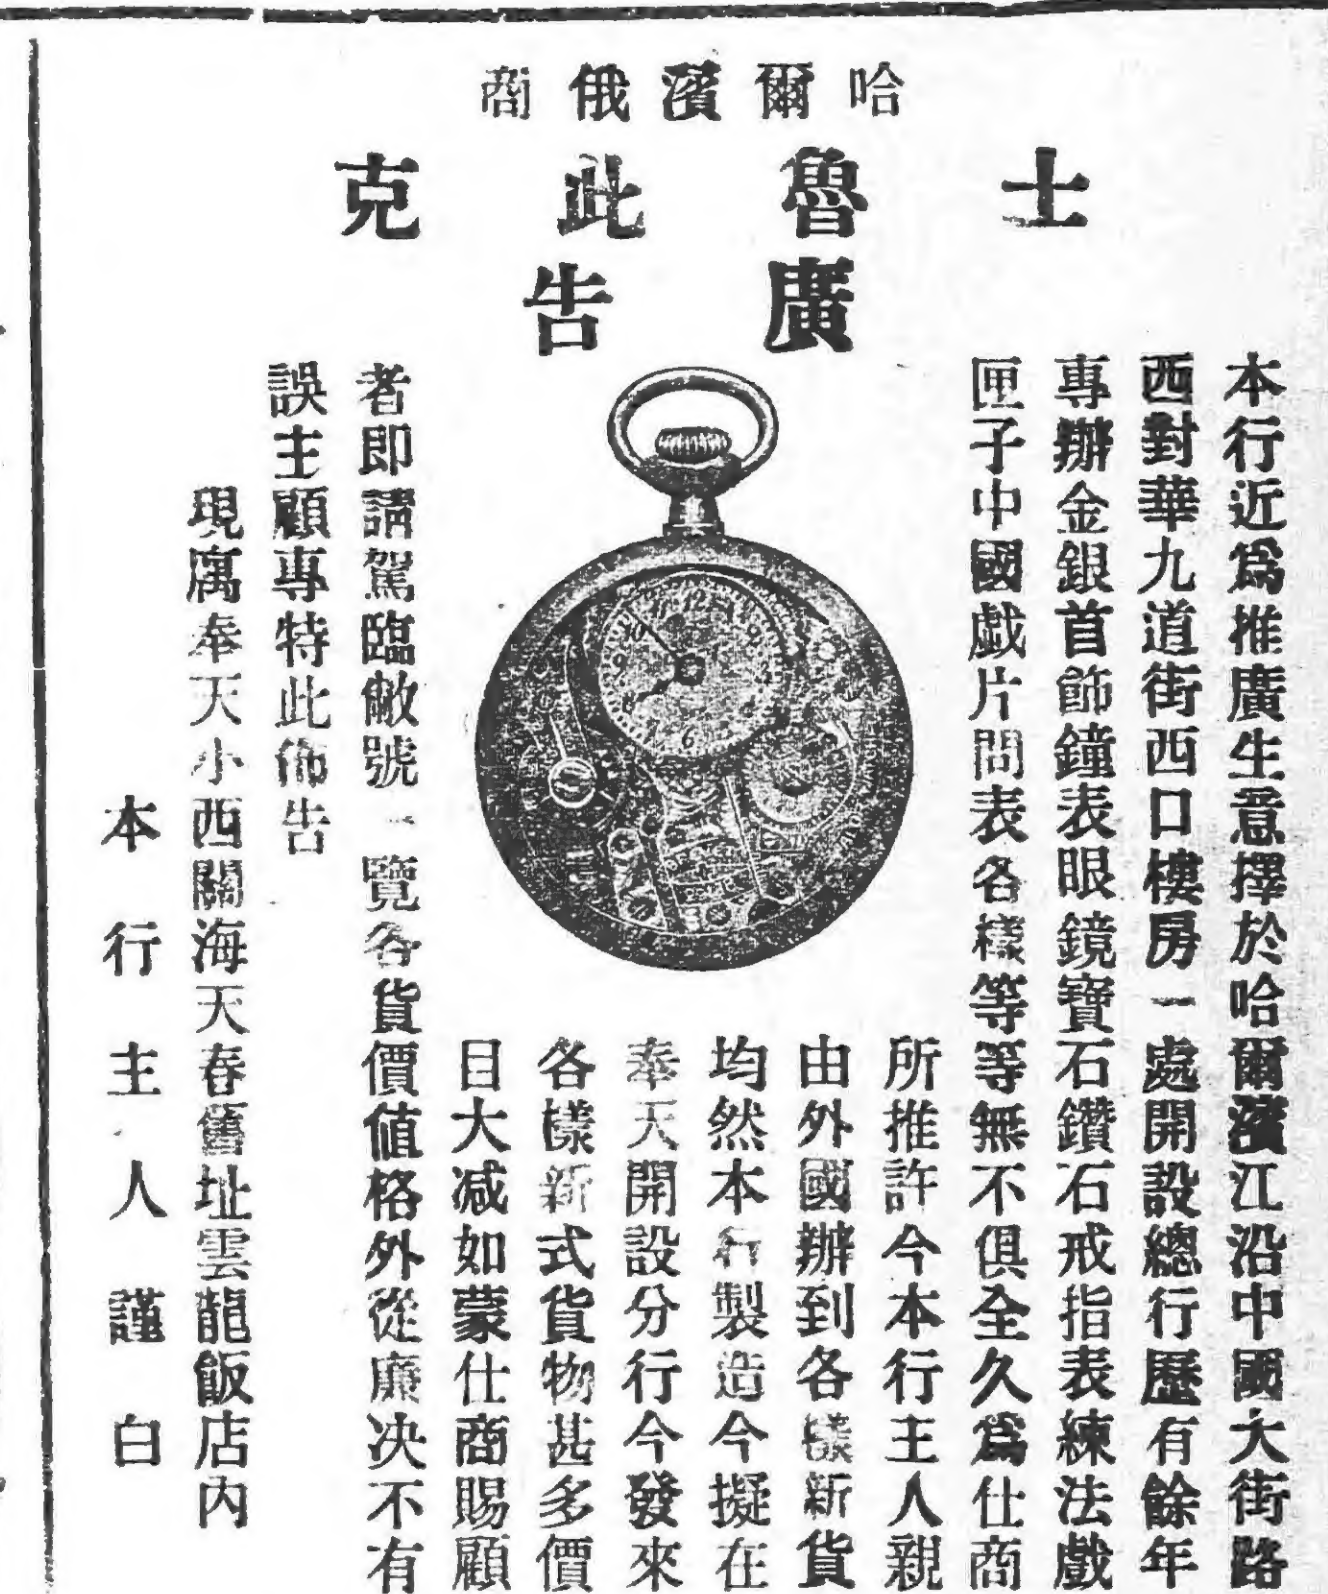 哈爾濱俄商
士魯此克
廣告
本行近爲推廣生意擇於哈爾濱江沿中國大街路
西對華九道街西口樓房一處開設總行歷有餘年
專辦金銀首飾鐘表眼鏡寶石鑽石戒指表練法戲
匣子中國戲片問表各樣等等無不俱全久爲仕商
所推許今本行主人親
由外國辦到各樣新貨
均然本行製造今擬在
奉天開設分行今發來
各樣新式貨物甚多價
目大减如蒙仕商賜顧
者即請駕臨敝號一覽各貨價値格外從廉决不有
誤主顧專特此佈告
現寓奉天小西關海天春舊址雲龍飯店內
本行主人謹白
12
10
6